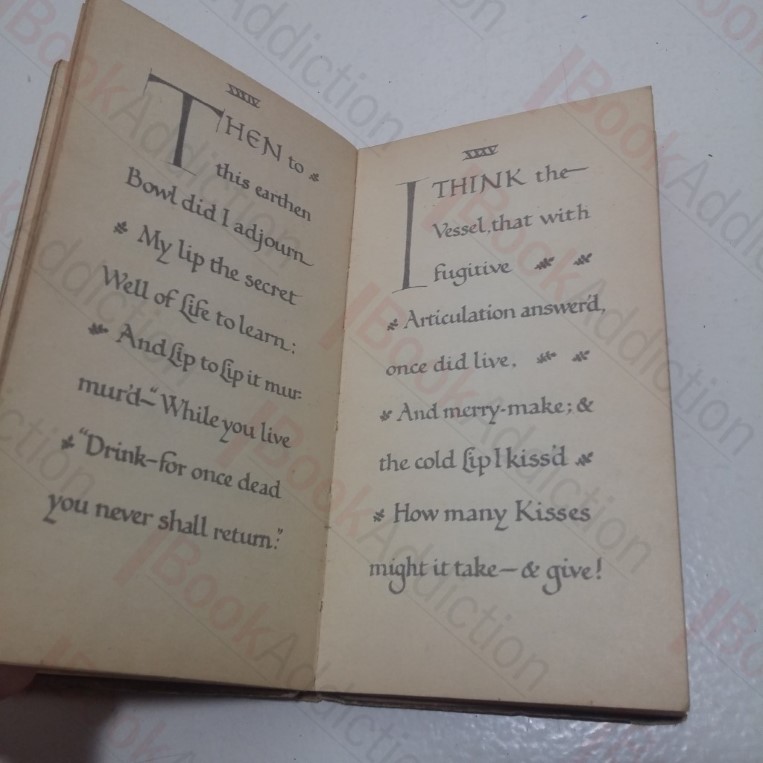 XXXIV
THEN to
this earthen
Bowl did I adjourn
My lip the secret
Well of Life to learn:
And Lip to Lip it mur-
mur'd—"While you live
"Drink—for once dead
you never shall return."
XXXV
I THINK the
Vessel, that with
fugitive
Articulation answer'd,
once did live,
And merry-make; &
the cold Lip I kiss'd
How many Kisses
might it take—& give!
BookAddiction